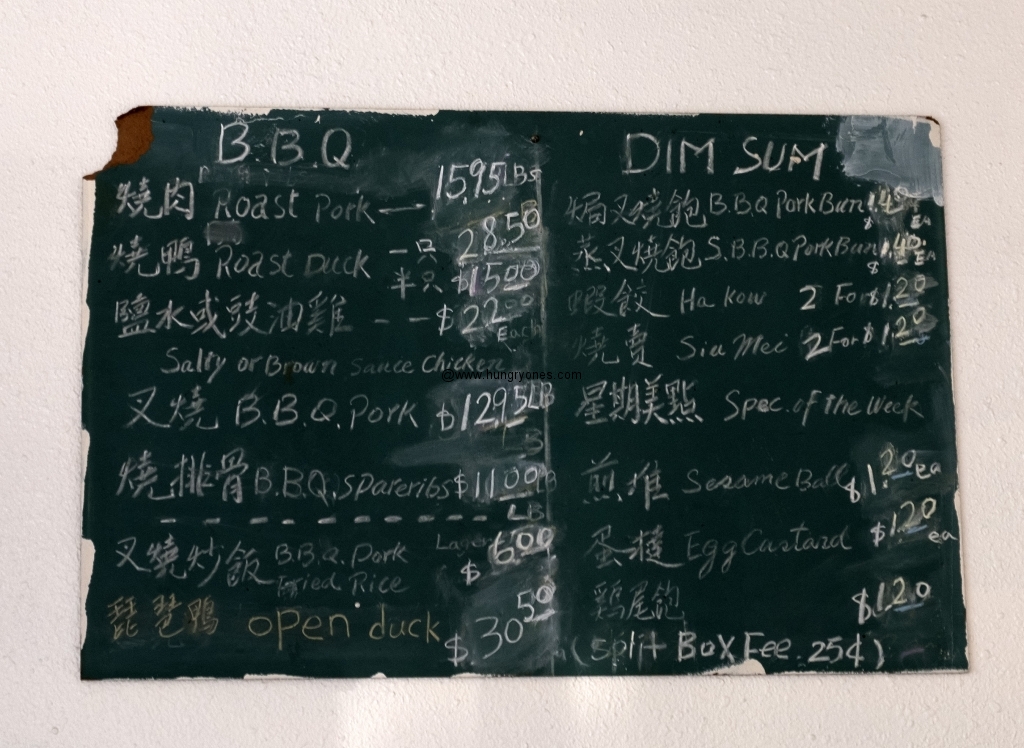 B.B.Q
燒肉 Roast Pork — 15.95 LBS
燒鴨 Roast Duck 一只 28.50
半只 $15.00
鹽水或豉油雞 - - $22.00
Each
Salty or Brown Sauce Chicken
叉燒 B.B.Q. Pork $12.95 LB
燒排骨 B.B.Q. Spareribs $11.00 LB
LB
叉燒炒飯 B.B.Q. Pork
Fried Rice
Lager $6.00
琵琶鴨 open duck $30.50
DIM SUM
焗叉燒飽 B.B.Q Pork Bun EA
蒸叉燒飽 S.B.B.Q Pork Bun EA
蝦餃 Ha kow 2 For $1.20
燒賣 Siu Mei 2 For $1.20
星期美點 Spec. of the Week
煎堆 Sesame Ball $1.20 ea
蛋撻 Egg Custard $1.20 ea
鷄尾飽 $1.20
(Split Box Fee .25¢)
@www.hungryones.com